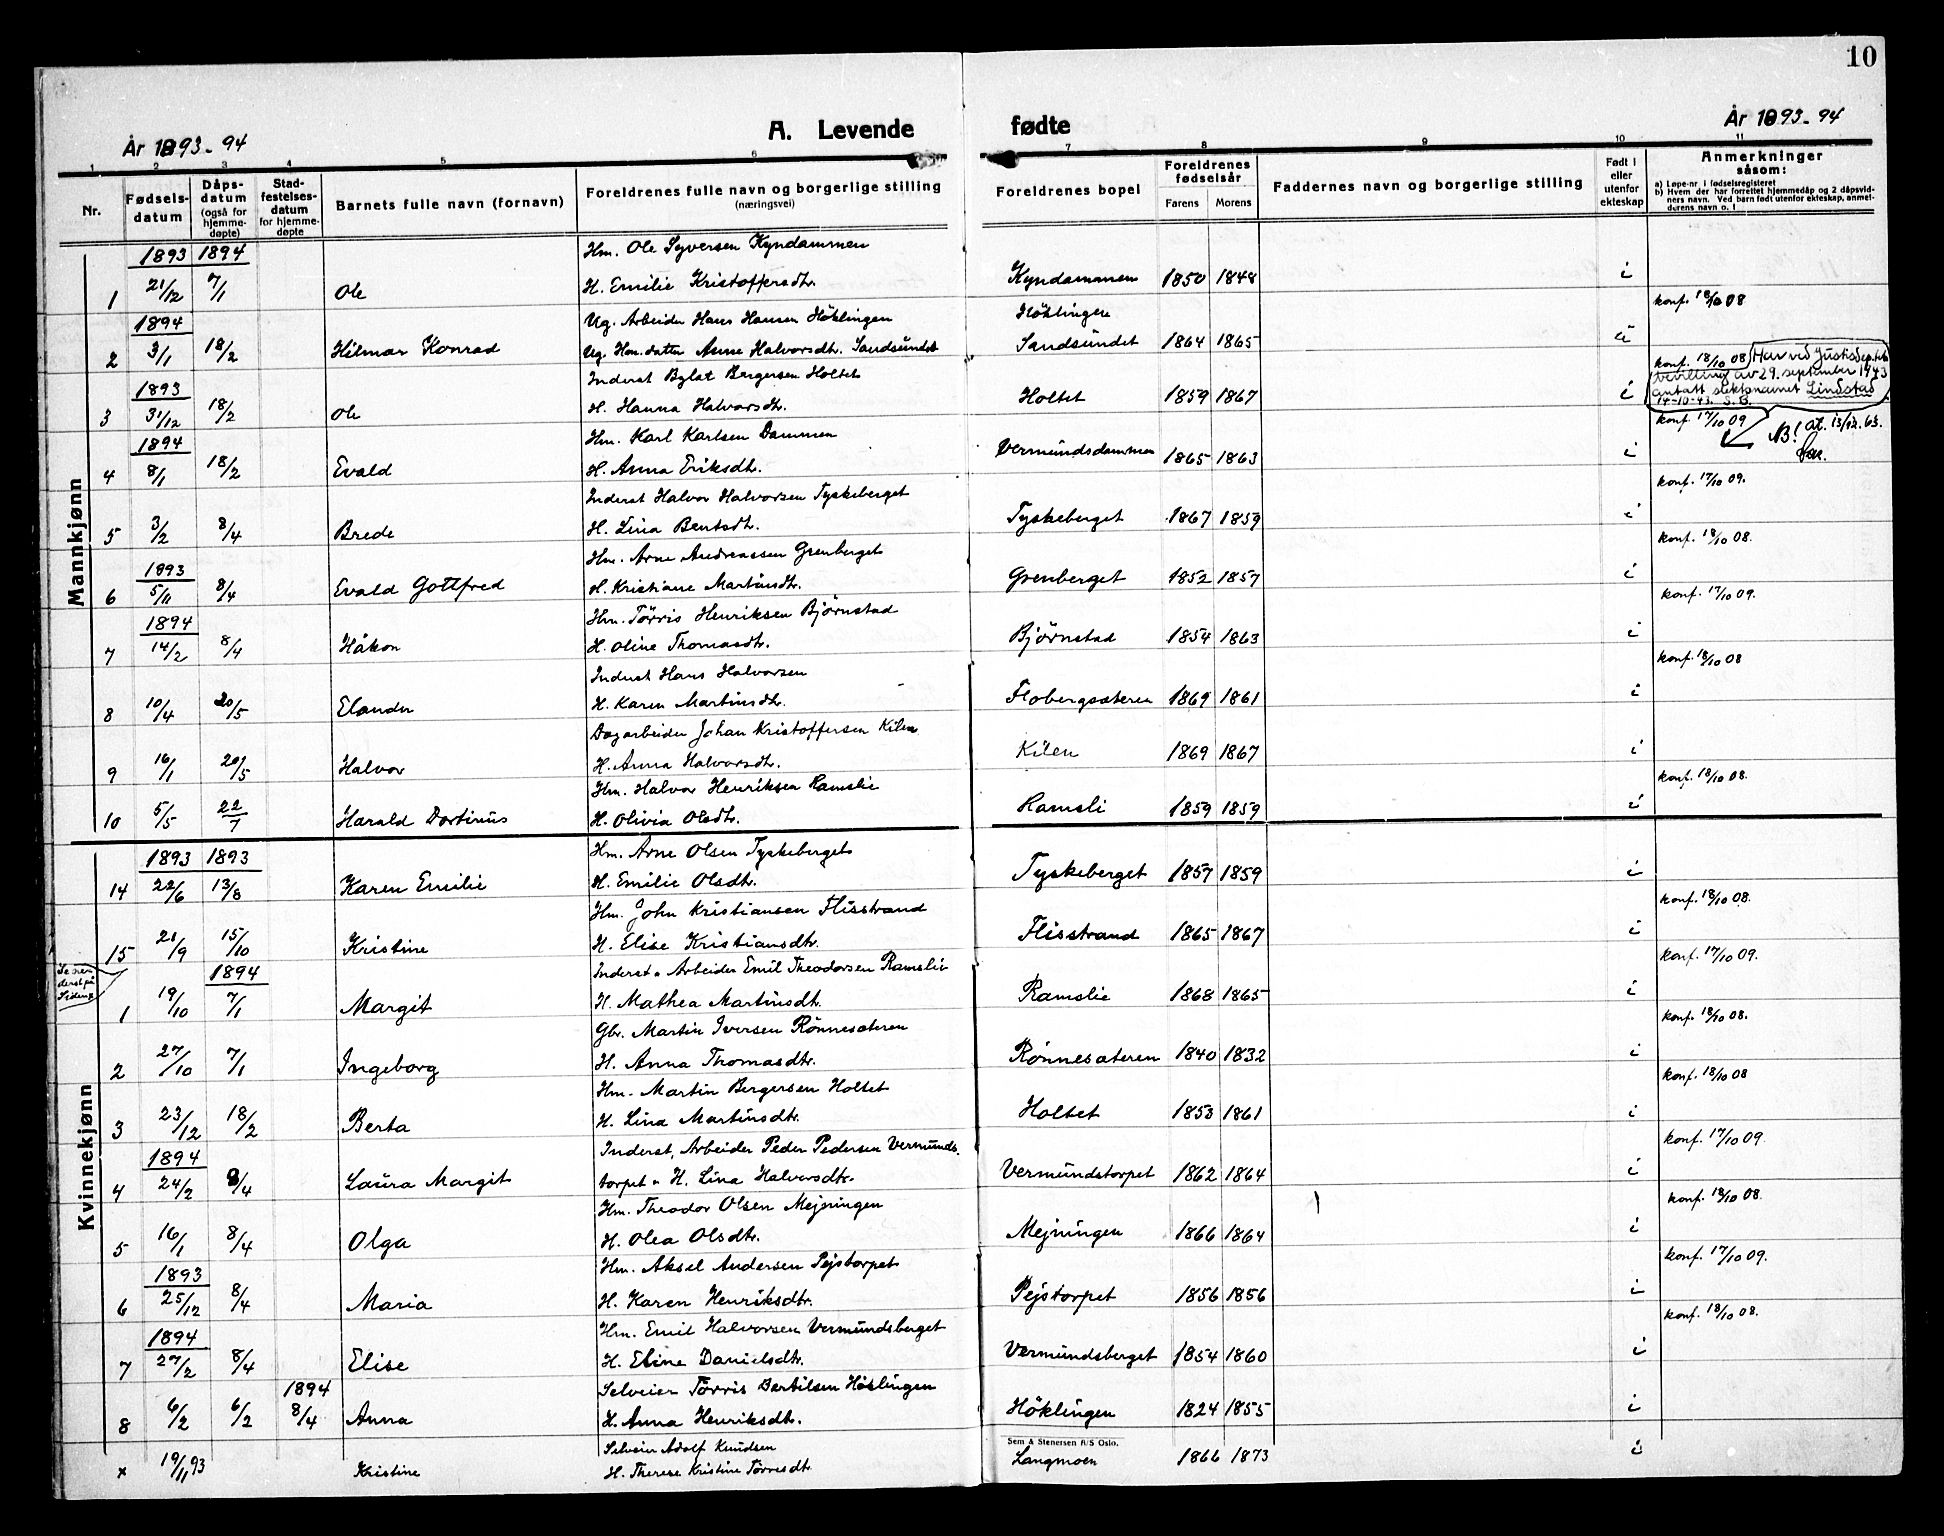 10
År 1893-94
A. Levende
fødte
År 1893-94
1 2 3 4 5 6 7 8 9 10 11
Nr.
Fødsels-
datum
Dåps-
datum
(også for
hjemme-
døpte)
Stad-
festelses-
datum
for hjemme-
døpte
Barnets fulle navn (fornavn)
Foreldrenes fulle navn og borgerlige stilling
(næringsvei)
Foreldrenes bopel
Foreldrenes
fødselsår
Farens Morens
Faddernes navn og borgerlige stilling
Født i
eller
utenfor
ekteskap
Anmerkninger
såsom:
a) Løpe-nr i fødselsregisteret
b) Hvem der har forrettet hjemmedåp og 2 dåpsvid-
ners navn. Ved barn født utenfor ekteskap, anmel-
derens navn o. l
Mannkjønn
1893 1894 Hm. Ole Syversen Kyndammen
1 21/12 7/1 Ole H. Emilie Kristoffersdtr. Kyndammen 1850 1848 i
konf. 18/10 08
1894 Ug. Arbeider Hans Hansen Höklingen Höklingen
2 3/1 18/2 Hilmar Konrad Ug. Hm. datter Anne Halvorsdtr. Sandsundet Sandsundet 1864 1865 ú
konf. 18/10 08 Har ved Justisdep.tets
bevilling av 29. september 1943
antatt slektsnavnet Lindstad
14-10-43. S.B.
1893 Inderst Bglat Bergersen Holtet
3 31/12 18/2 Ole H. Hanna Halvorsdtr. Holtet 1859 1867 i
konf. 17/10 09 NB! at. 13/12. 63.
1894 Hm. Karl Karlsen Dammen
4 8/1 18/2 Evald H. Anna Eriksdtr. Vermundsdammen 1865 1863 i
konf. 17/10 09.
Inderst Halvor Halvorsen Tyskeberget
5 3/2 8/4 Brede H. Lina Berntsdtr. Tyskeberget 1867 1859 i
konf. 18/10 08.
1893 Hm. Arne Andreassen Grenberget
6 5/11 8/4 Evald Gottfred H. Kristiane Martinsdtr. Grenberget 1852 1857 i
konf. 17/10 09.
1894 Hm. Törris Henriksen Björnstad
7 14/2 8/4 Håkon H. Oline Thomasdtr. Björnstad 1854 1863 i
konf. 18/10 08
Inderst Hans Halvorsen
8 10/4 20/5 Elander H. Karen Martinsdtr. Flobergsæteren 1869 1861 i
Dagarbeider Johan Kristoffersen Kilen
9 16/1 20/5 Halvor H. Anna Halvorsdtr. Kilen 1869 1867 i
konf. 18/10 08.
Hm. Halvor Henriksen Ramslie
10 5/5 22/7 Harald Dortinus H. Olivia Olsdtr. Ramsli 1859 1859 i
Kvinnekjønn
1893 1893 Hm. Arne Olsen Tyskeberget
14 22/6 13/8 Karen Emilie H. Emilie Olsdtr. Tyskeberget 1857 1859 i
konf. 18/10 08.
Hm. John Kristiansen Flisstrand
15 21/9 15/10 Kristine H. Elise Kristiansdtr. Flisstrand 1865 1867 i
konf. 17/10 09.
Se ne-
derst på
siden
1894 Inderst, Arbeider Emil Theodorsen Ramslie
1 19/10 7/1 Margit H. Mathea Martinsdtr. Ramslie 1868 1865 i
konf. 18/10 08.
Gbr. Martin Iversen Rönnesæteren
2 27/10 7/1 Ingeborg H. Anna Thomasdtr. Rönnesæteren 1840 1832 i
konf. 18/10 08
Hm. Martin Bergersen Holtet
3 23/12 18/2 Berta H. Lina Martinsdtr. Holtet 1853 1861 i
konf. 17/10 09.
1894 Inderst, Arbeider Peder Pedersen Vermunds-
4 24/2 8/4 Laura Margit torpet " H. Lina Halvorsdtr. Vermundstorpet 1862 1864 i
konf. 18/10 08.
Hm. Theodor Olsen Mejningen
5 16/1 8/4 Olga H. Olea Olsdtr. Mejningen 1866 1864 i
konf. 17/10 09.
1893 Hm. Aksel Andersen Pejstorpet
6 25/12 8/4 Maria H. Karen Henriksdtr. Pejstorpet 1856 1856 i
konf. 18/10 08.
1894 Hm. Emil Halvorsen Vermundsberget
7 27/2 8/4 Elise H. Eline Danielsdtr. Vermundsberget 1854 1860 i
1894 Selveier Törris Bertilsen Höklingen
8 6/2 6/2 8/4 Anna H. Anna Henriksdtr. Höklingen 1824 1855 i
Sem & Stenersen A/S Oslo.
Selveier Adolf Knudsen
x 19/11 93 Kristine H. Therese Kristine Törresdtr Langmoen 1866 1873 i